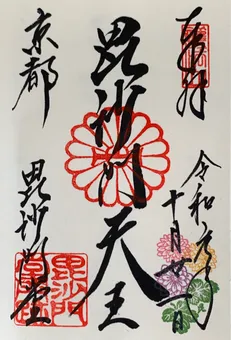 奉拝
令和元年
十月廿一日
毘沙門天王
京都
毘沙門堂
毘沙門